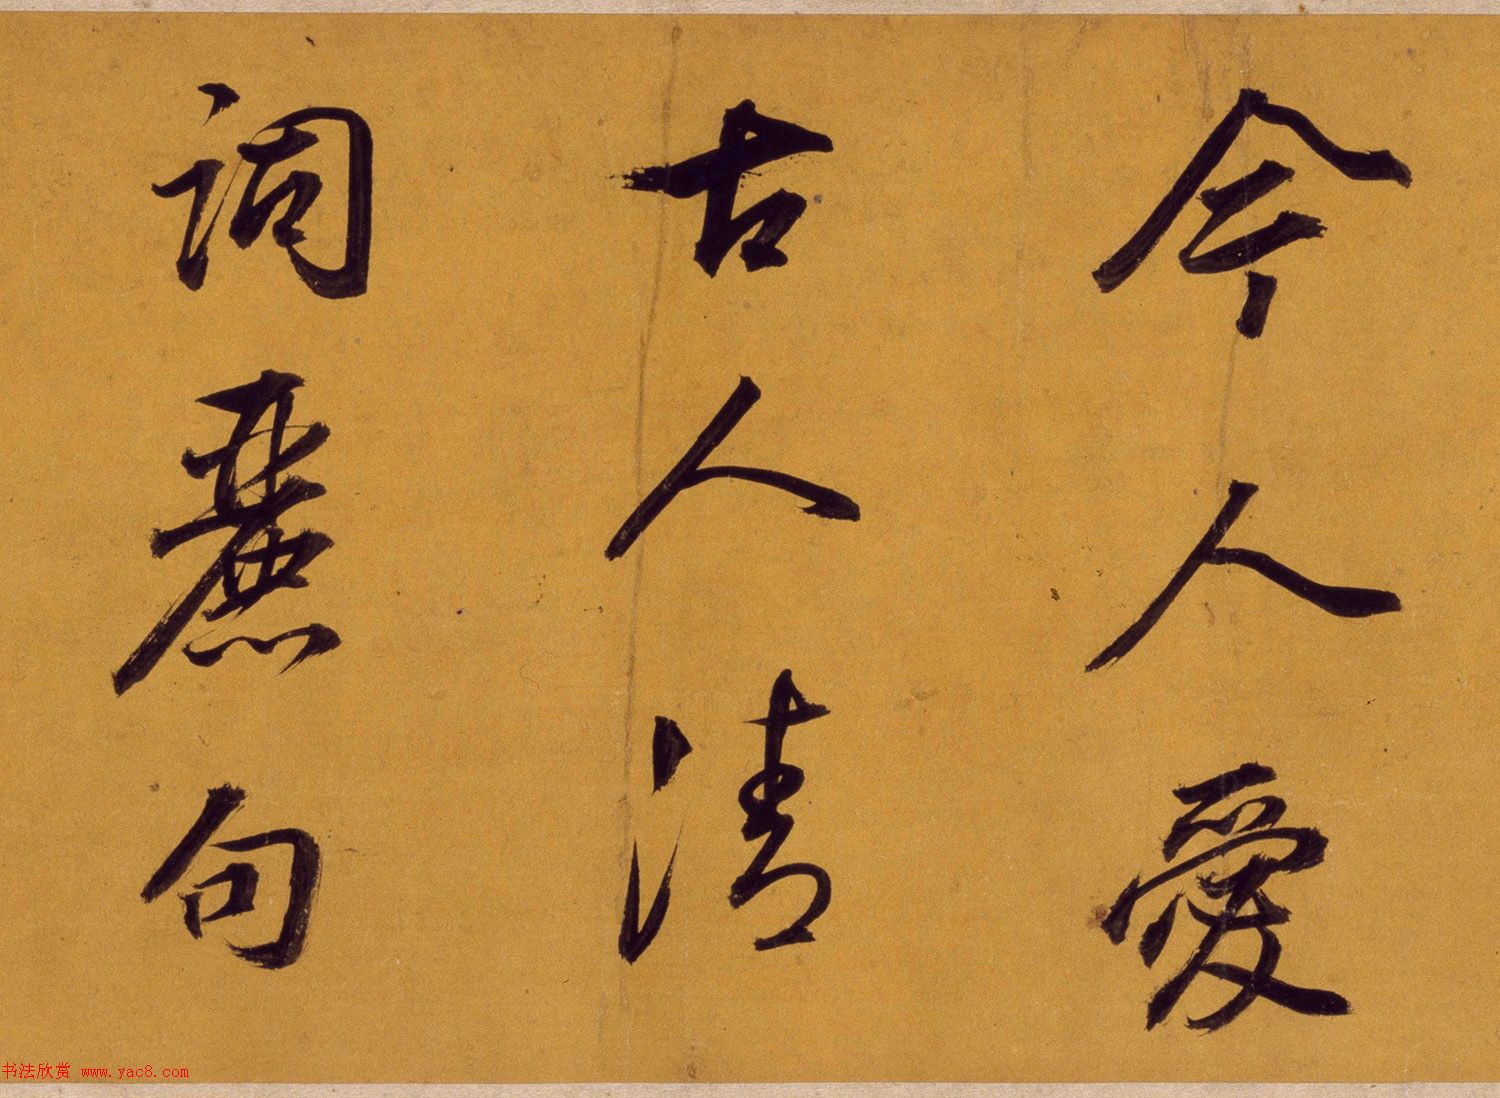 今人愛
古人清
詞麗句
书法欣赏 www.yac8.com